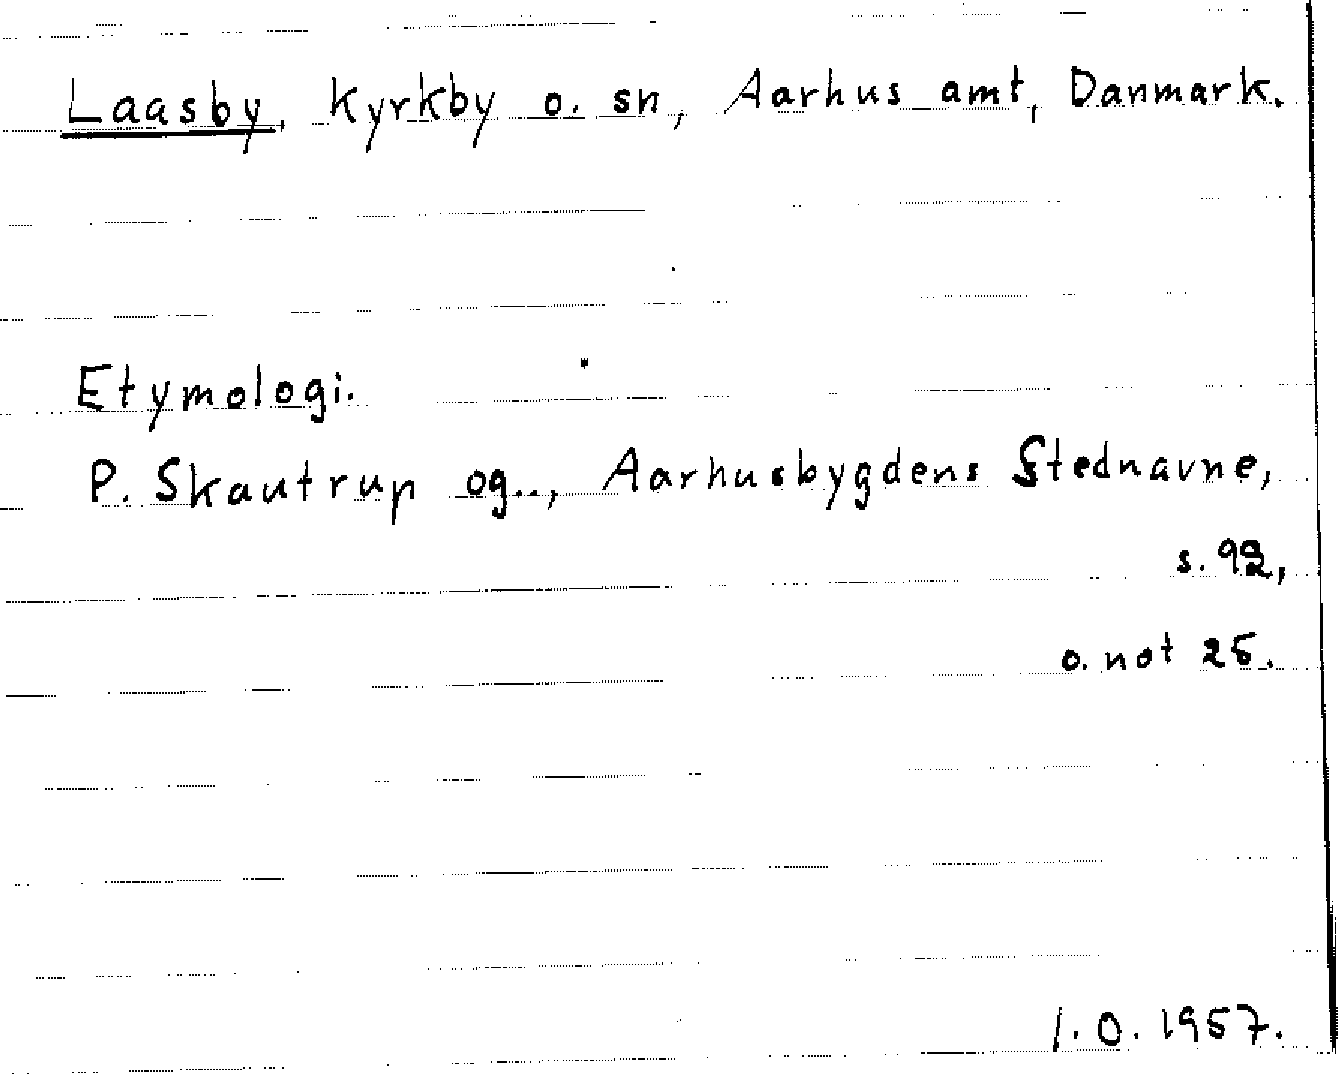 Laasby, Kyrkby o. sn, Aarhus amt, Danmark.
Etymologi.
P. Skautrup og.., Aarhusbygdens Stednavne,
s. 92,
o. not 25.
1.0.1957.